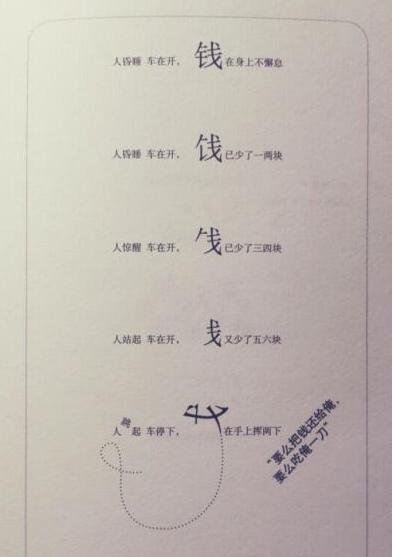 人昏睡 车在开，钱在身上不懈怠
人昏睡 车在开，已少了一两块
人惊醒 车在开，已少了三四块
人站起 车在开，又少了五六块
人跳起 车停下，在手上挥两下
“要么把钱还给俺，
要么吃俺一刀”